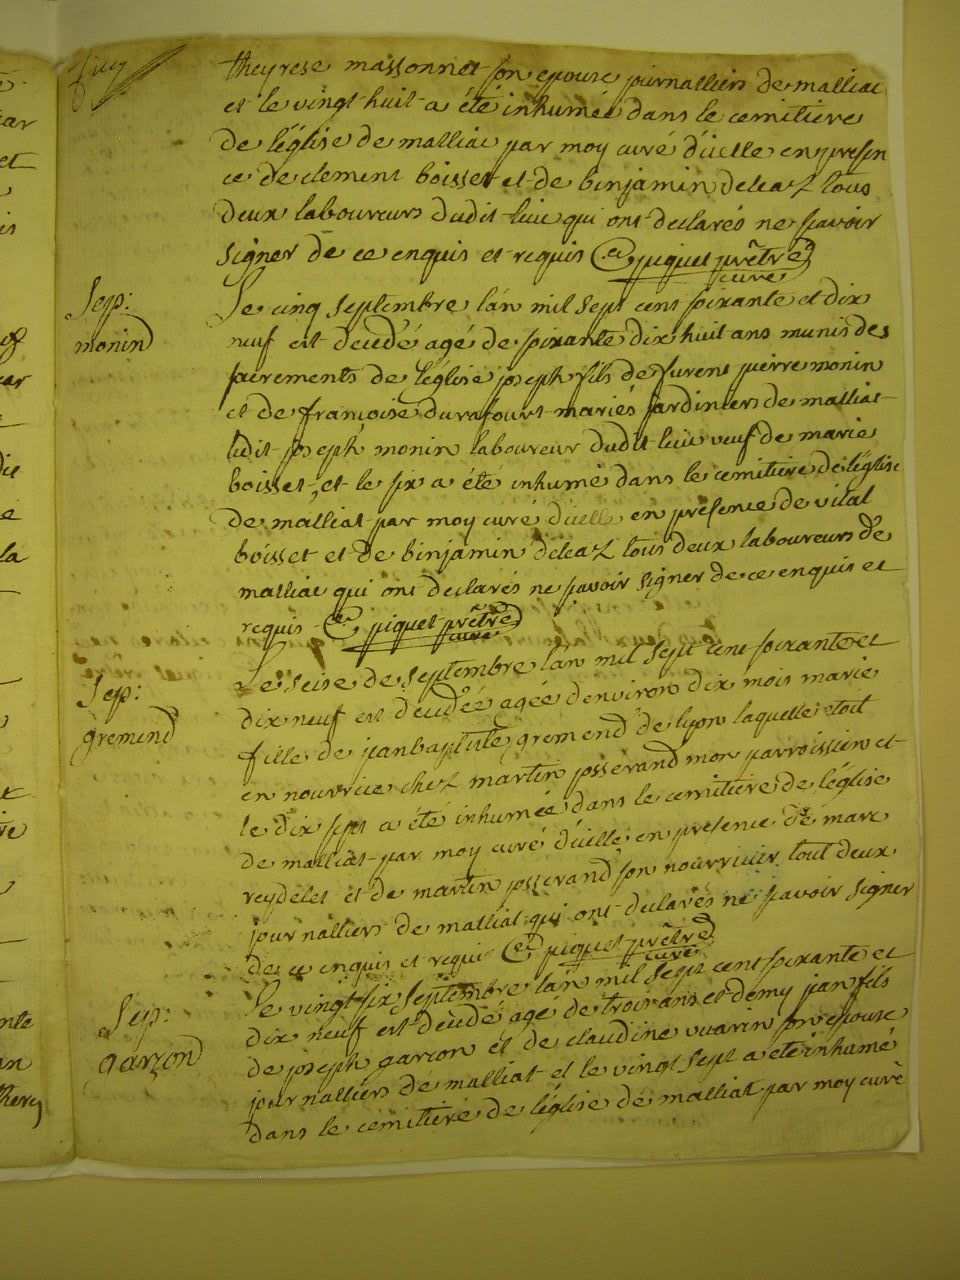 theyrese massonnet son epouse journalliers de malliac
et le vingt huit a été inhumée dans le cemitiere
de léglise de malliac par moy curé d'icelle en presen
ce de clement boisset et de binjamin deleaz tous
deux laboureurs dudit lieu qui ont declarés ne savoir
signer de ce enquis et requis piquet prêtre
curé
Sep:
monind
Le cinq septembre l'an mil sept cent soixante et dix
neuf est decédé agé de soixante dix huit ans munis des
sacrements de l'église joseph fils de furent pierre monin
et de francoise durafourt mariés jardiniers de malliat
ledit joseph monin laboureur dudit lieu veuf de marie
boisset, et le six a été inhumé dans le cemitiere de léglise
de malliat par moy curé d'icelle en présence de vital
boisset et de binjamin deleaz tous deux laboureurs de
malliac qui ont declarés ne savoir signer de ce enquis et
requis piquet prêtre
curé
Sep:
gremend
Le seise de septembre l'an mil sept cent soixante et
dix neuf est décédée agée d'environ dix mois marie
fille de jeanbaptiste gremend de lyon laquelle etoit
en nourrice chez martin josserand mon parroissien et
le dix sept a été inhumée dans le cemitiere de léglise
de malliat par moy curé d'icelle en presence de marc
reydelet et de martin josserand son nourricier tout deux
journalliers de malliat qui ont declarés ne savoir signer
de ce enquis et requi piquet prêtre
curé
Sep:
garçon
Le vingt six septembre l'an mil sept cent soixante et
dix neuf est decédé agé de trois ans et demy jean fils
de joseph garcon et de claudine vuarin son epouse
journalliers de malliat et le vingt sept a eté inhumé
dans le cemitiere de léglise de malliat par moy curé